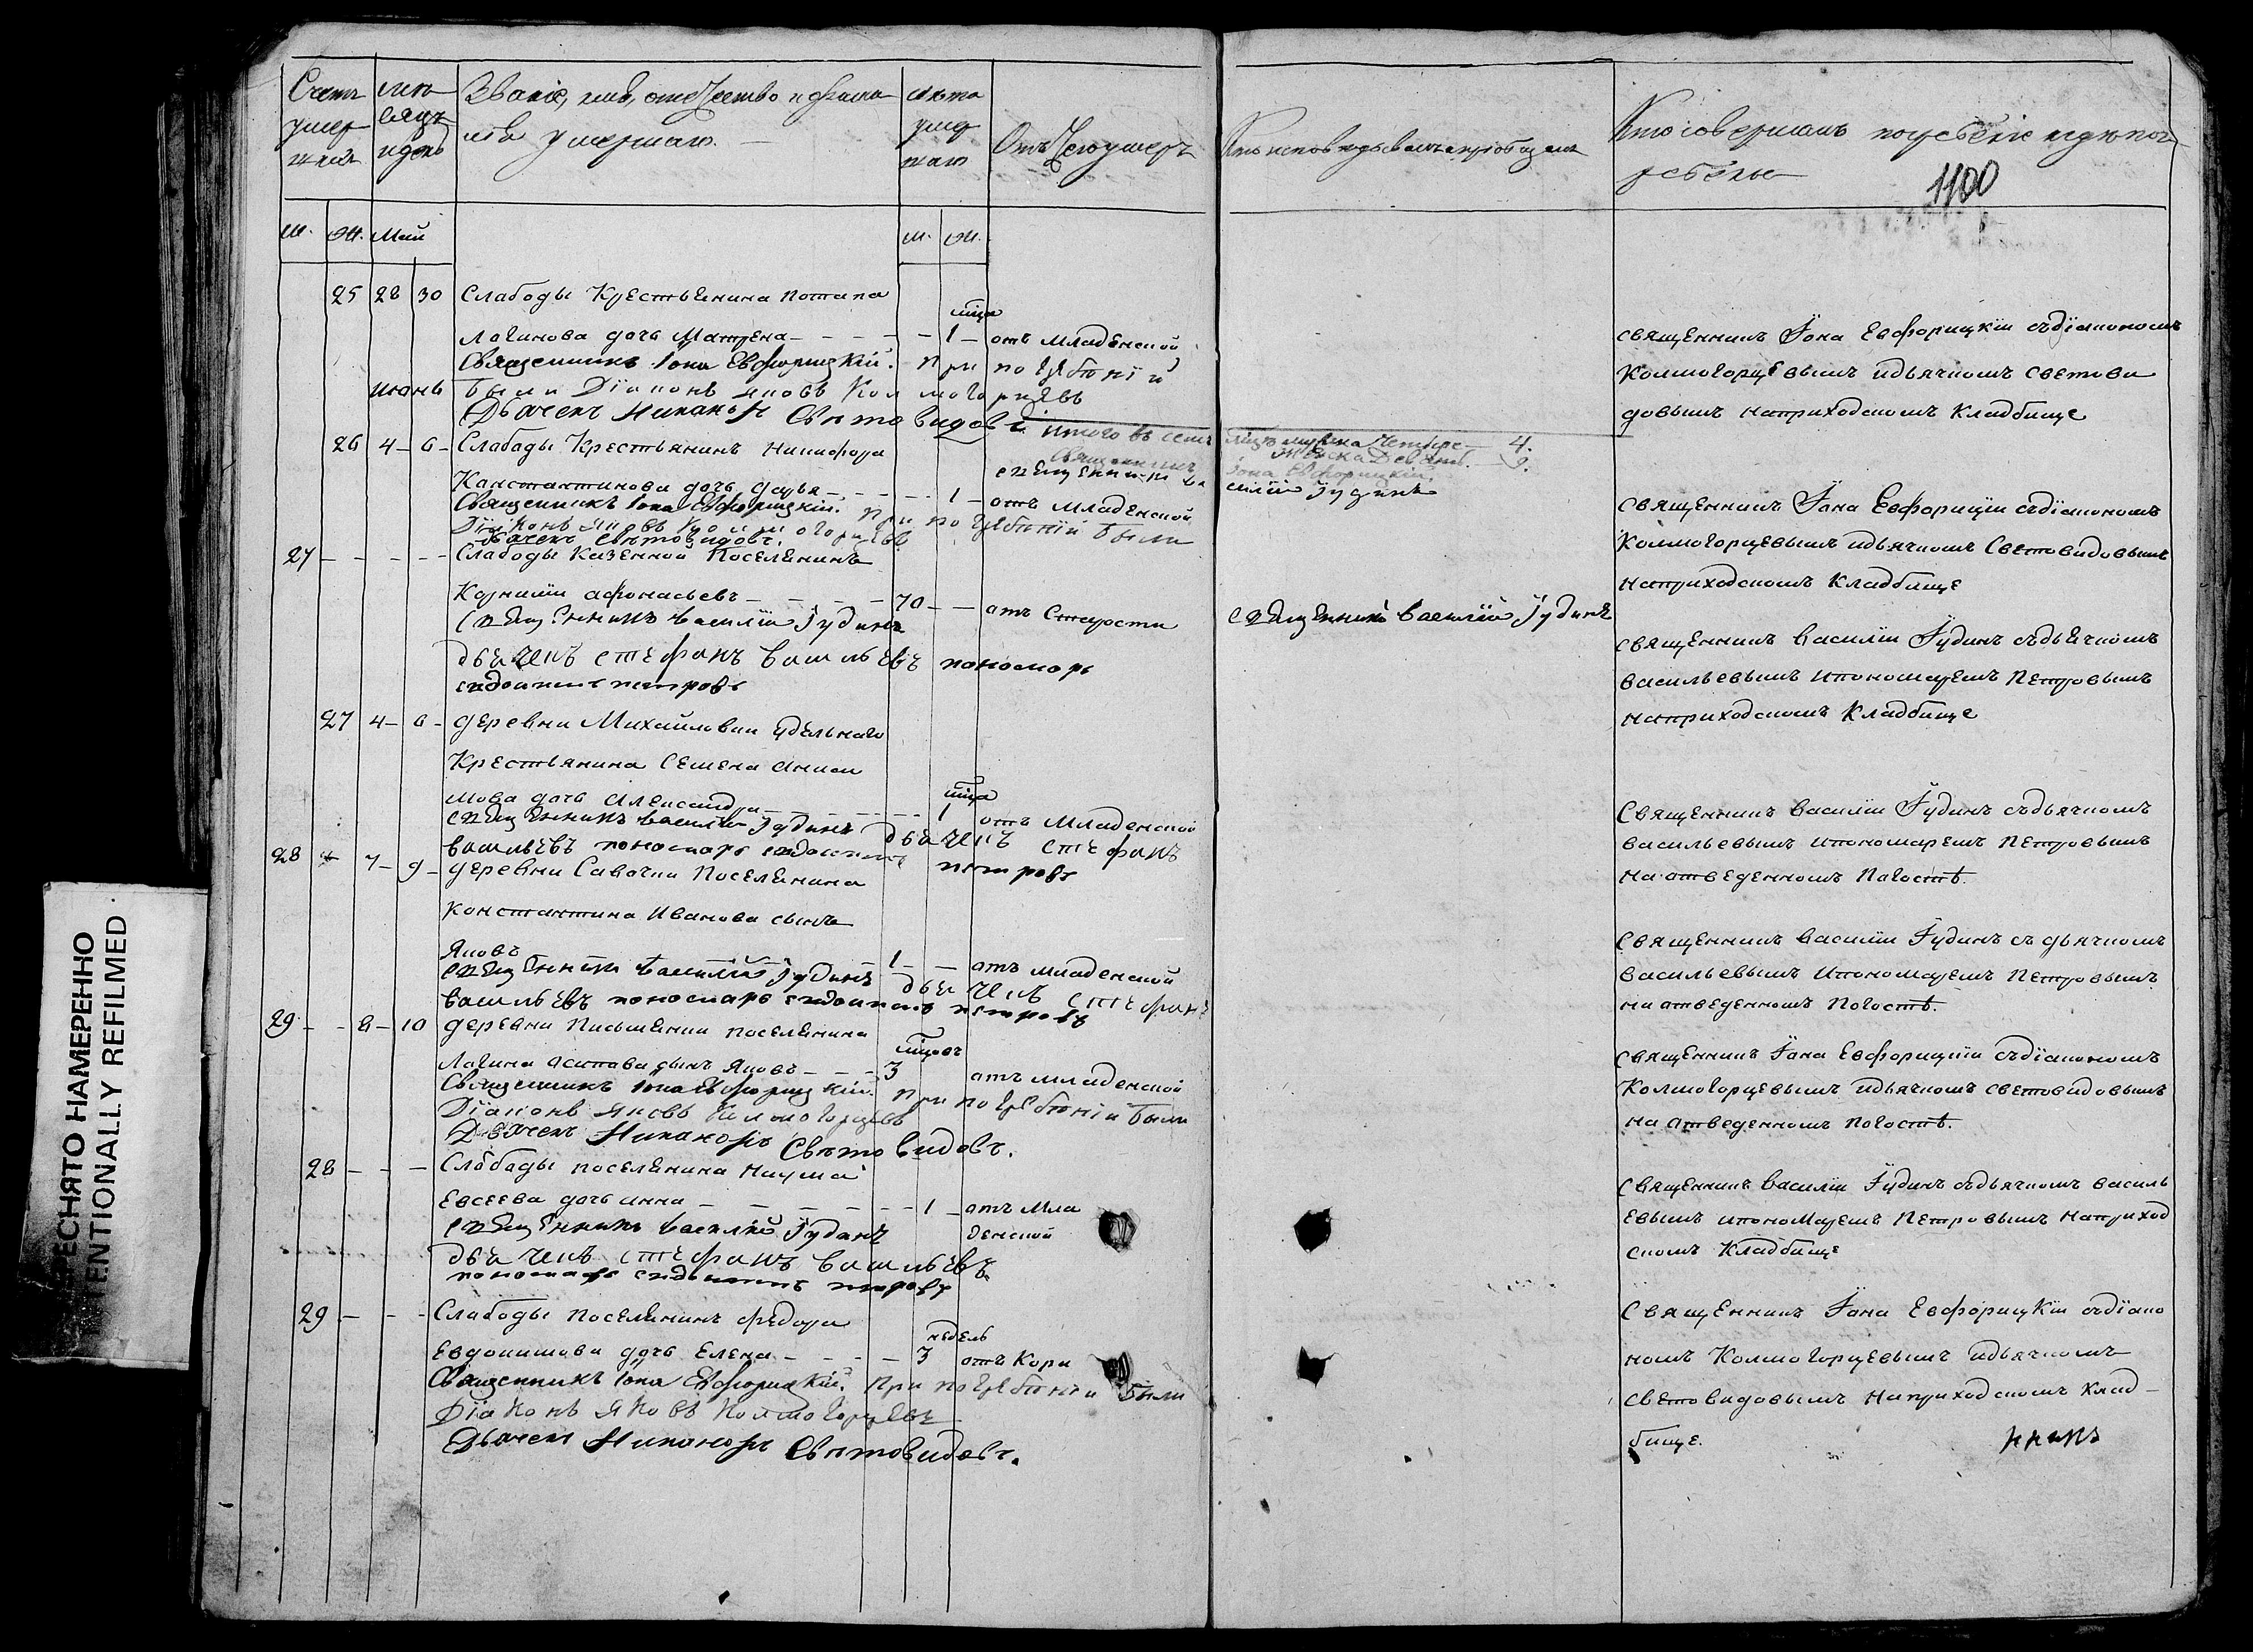 Счетъ умер-шихъ
мѣсяцъ и день
Званіе, имя, отечество и фами-
лія умершаго.
лѣта умершаго
Отъ чего умеръ
Кто исповѣдывалъ и пріобщалъ
Кто совершалъ погребеніе и гдѣ пог-
ребены
1100
м. ж. Май
м. ж.
25 28 30 Слабоды Крестьянина Потапа
мѣсяца
Логинова дочь Матрена - - - - 1 - отъ младенской
Священникъ Іона Евфорицкій. При погребѣніи
были Діаконъ Яковъ Колмогорцевъ
Дьячекъ Никаноръ Святовидовъ
священникъ Іона Евфорицкій съ діакономъ
Колмогорцевымъ и дьячкомъ Световидовымъ на приходскомъ кладбище
Итого въ семъ мѣсяцѣ мужска четыре - 4.
женска девять. - 9.
Священникъ Іона Евфорицкій
Июнь
26 4 - 6 - Слабоды Крестьянинъ Никифора
Канстантинова дочь Дарья - - - - 1 - отъ младенской
священникъ Василій Іудинъ
Священникъ Іона Евфорицкій. При погребѣніи были
Діаконъ Яковъ Колмогорцевъ
Дьячекъ Святовидовъ.
священникъ Іона Евфорицкіи съ діакономъ
Колмогорцевымъ и дьячкомъ Световидовымъ
на приходскомъ кладбище
27 - - - - - Слабоды Казенной Поселянинъ
Корнилій Афонасьевъ - - - - 70 - - отъ старости
священникъ Василій Іудинъ
священникъ Василій Іудинъ
дьячекъ Стефанъ Васильевъ пономарь
Евдокимъ Петровъ
священникъ Василіи Іудинъ съ дьячкомъ
Васильевымъ и пономаремъ Петровымъ
на приходскомъ кладбище
27 4 - 6 - деревни Михайловки Удельнаго
Крестьянина Семена Аниси
мова дочь Александра - - - - -
мѣсяца
1 отъ младенской
священникъ Василій Іудинъ дьячекъ Стефанъ
Васильевъ пономарь Евдокимъ Петровъ
Священникъ Василіи Іудинъ съ дьячкомъ
Васильевымъ и пономаремъ Петровымъ
на отведенномъ Погостѣ.
28 7 - 9 - деревни Савочки Поселянина
Константина Иванова сынъ
Яковъ 1 - - отъ младенской
священникъ Василій Іудинъ дьячекъ Стефанъ
Васильевъ пономарь Евдокимъ Петровъ
Священникъ Василіи Іудинъ съ дьячкомъ
Васильевымъ и пономаремъ Петровымъ
на отведенномъ Погостѣ.
29 - - 8 - 10 деревни Письменки поселянина
мѣсяцовъ
Логина Осипова сынъ Яковъ - - - 3 отъ младенской
Священникъ Іона Евфорицкій. При погребѣніи были
Діаконъ Яковъ Колмогорцевъ
Дьячекъ Никаноръ Святовидовъ.
Священникъ Іона Евфорицкіи съ діакономъ
Колмогорцевымъ и дьячкомъ Световидовымъ
на отведенномъ Погостѣ.
28 - - - Слободы поселянина Наума
Евсеева дочь Анна - - - - - - 1 - отъ мла
денской
священникъ Василій Іудинъ
дьячекъ Стефанъ Васильевъ
пономарь Евдокимъ Петровъ
Священникъ Василіи Іудинъ съ дьячкомъ Василь
евымъ и пономаремъ Петровымъ на приход
скомъ кладбище
29 - - - Слабоды Поселянинъ Федора
недель
Евдокимова дочь Елена - - - - 3 отъ кори
Священникъ Іона Евфорицкій. При погребѣніи были
Діаконъ Яковъ Колмогорцевъ
Дьячекъ Никаноръ Святовидовъ.
Священникъ Іона Евфорицкіи съ діако
номъ Колмогорцевымъ и дьячкомъ
Световидовымъ на приходскомъ клад-
бище.
нникъ
ЕРЕСНЯТО НАМЕРЕННО
TENTIONALLY REFILMED.